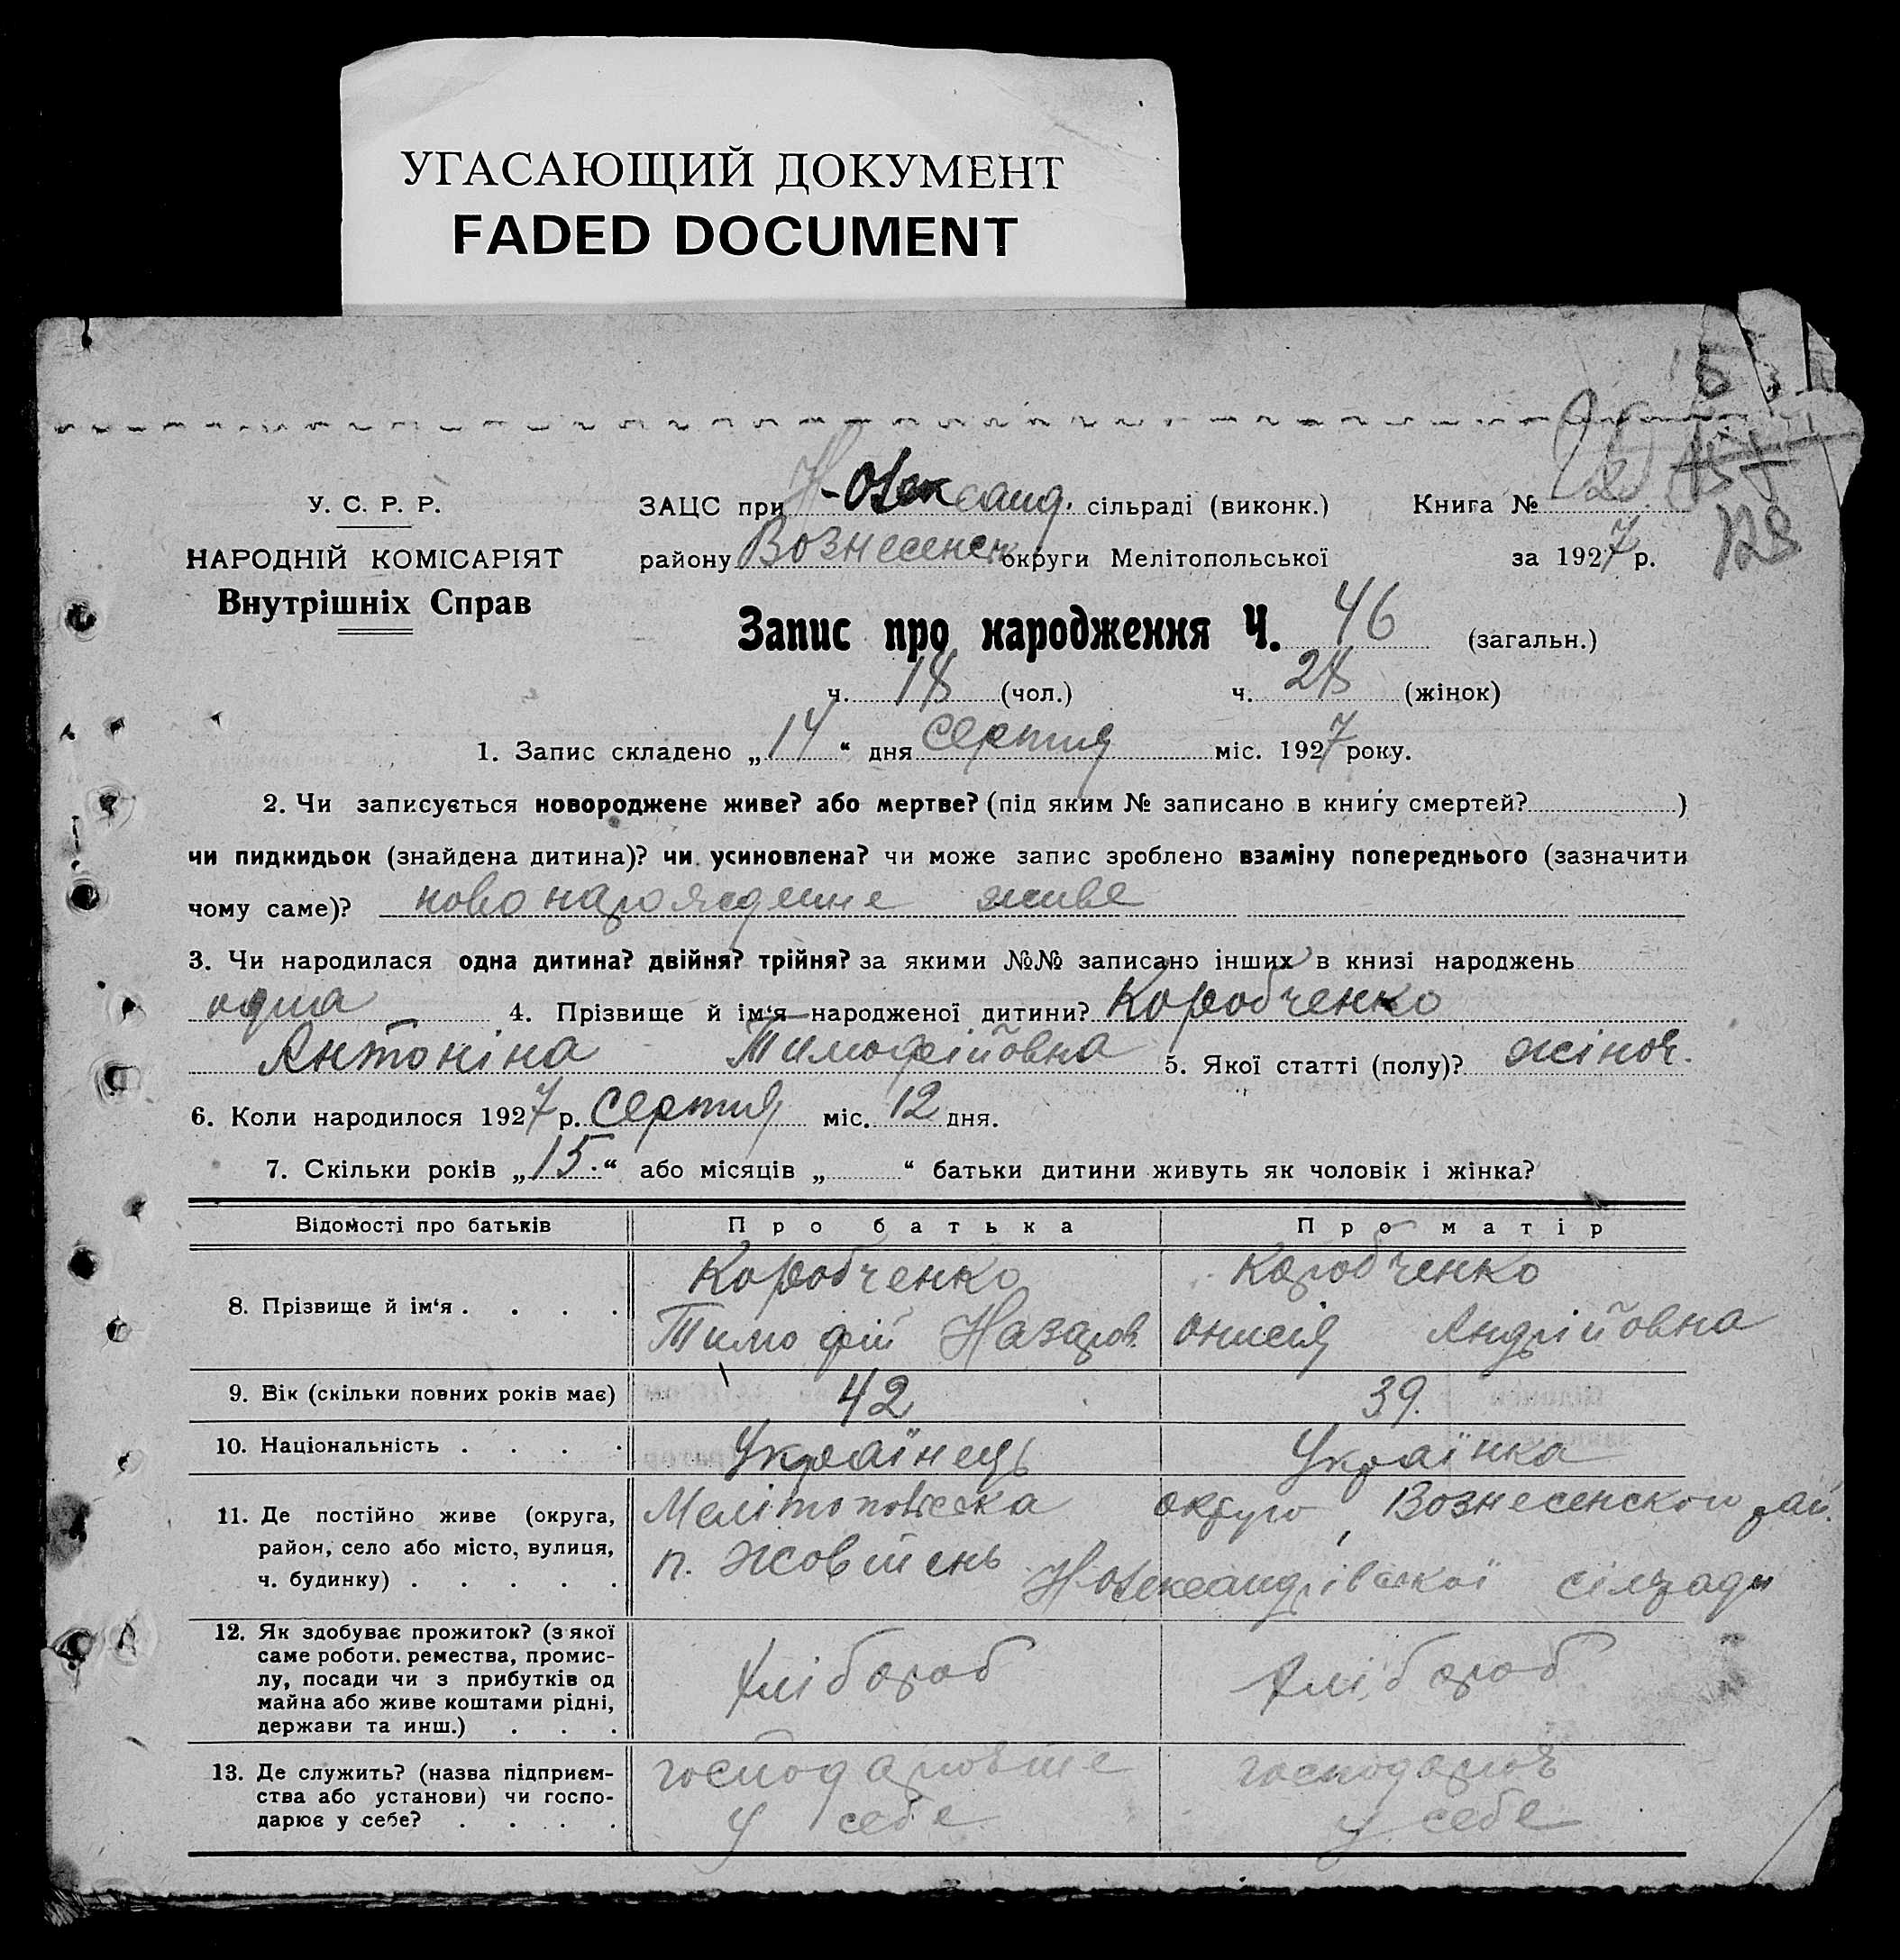 УГАСАЮЩИЙ ДОКУМЕНТ
FADED DOCUMENT
У. С. Р. Р.
НАРОДНІЙ КОМІСАРІЯТ
Внутрішніх Справ
ЗАЦС при Н-Олександ. сільраді (виконк.) Книга № 2
району Вознесенск округи Мелітопольської за 1927 р.
128
Запис про народження Ч. 46 (загальн.)
ч. 18 (чол.) ч. 28 (жінок)
1. Запис складено „14“ дня серпня міс. 1927 року.
2. Чи записується новороджене живе? або мертве? (під яким № записано в книгу смертей? )
чи пидкидьок (знайдена дитина)? чи усиновлена? чи може запис зроблено взаміну попереднього (зазначити
чому саме)? новонарождение живе
3. Чи народилася одна дитина? двійня? трійня? за якими №№ записано інших в книзі народжень
одна 4. Прізвище й ім‘я народженої дитини? Коробченко
Антоніна Тимофійовна 5. Якої статті (полу)? жіноч.
6. Коли народилося 1927 р. серпня міс. 12 дня.
7. Скільки років „15.“ або місяців „ “ батьки дитини живуть як чоловік і жінка?
Відомості про батьків Про батька Про матір
8. Прізвище й ім‘я . . . . Коробченко Коробченко
Тимофій Назаров. Онисія Андрійовна
9. Вік (скільки повних років має) 42 39.
10. Національність . . . . Українець Українка
11. Де постійно живе (округа, район, село або місто, вулиця, ч. будинку) . . . . . Мелітопольска округо, Вознесенской рай.
п. Жовтень Н-Олександрівської сілради
12. Як здобуває прожиток? (з якої саме роботи. ремества, промислу, посади чи з прибутків од майна або живе коштами рідні, держави та инш.) . . . Хлібороб Хлібороб
13. Де служить? (назва підприємства або установи) чи господарює у себе? . . . .
у себе у себе